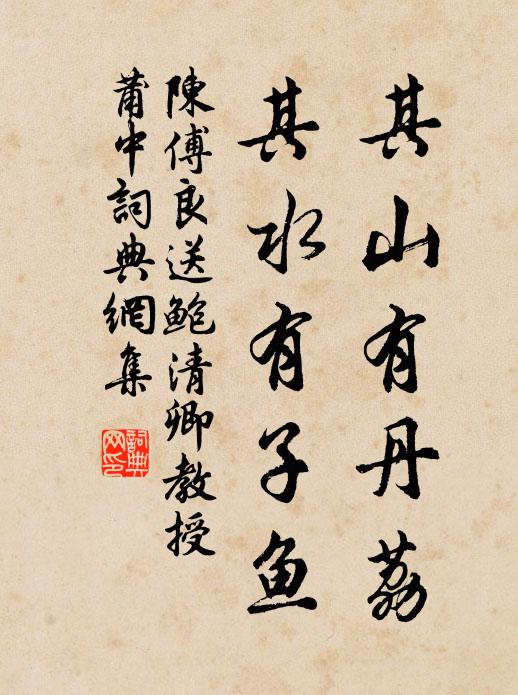 其山有丹荔
其水有子鱼
陳傅良送鮑清卿教授
莆中詞典網集
詞典網印